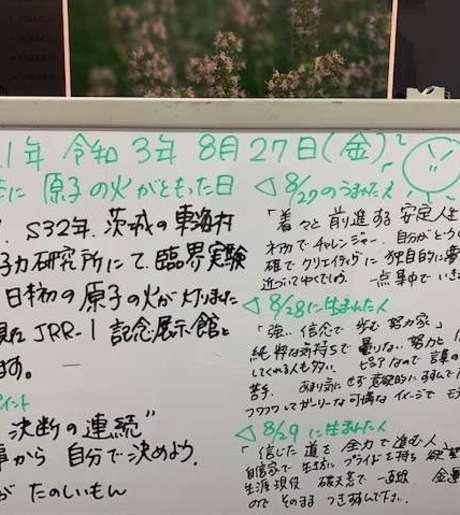 1年 令和3年 8月27日(金)
に 原子の火がともった日
S32年、茨城の東海村
子力研究所にて、臨界実験
日本初の原子の火が灯りました
JRR-1 記念展示館と
ます。
ポイント
決断の連続"
事から 自分で決めよう.
が たのしいもん
◁ 8/27のうまれた人
「着々と前進する安定人生
でチャレンジャー. 自分がとう
確でクリエイティブに 独自的に夢
近づいてゆくでしょう. 一点集中で
◁ 8/28に生まれた人
「強い信念で 歩む努力家」
純粋な気持ちで 量りない努力と
してくれる人も多い. ピュアなので 言葉の
苦手. あまり気にせず 意欲的に すすんで
フワフワしてガーリーな 可憐な イメージで モテ
◁ 8/29 に生まれた人
「信じた道を全力で進む人
自信家で プライドを持ち
生涯現役. 破天荒で 一直線 金運
ので そのまま つき進んで下さい.